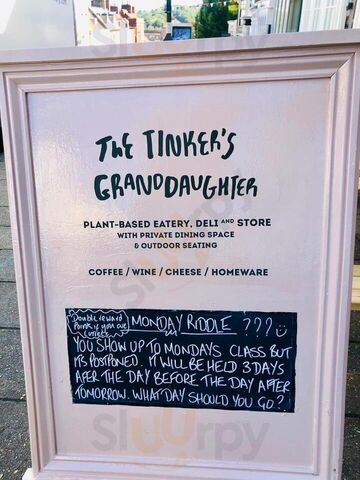 THE TINKER'S
GRANDDAUGHTER
PLANT-BASED EATERY, DELI AND STORE
WITH PRIVATE DINING SPACE
& OUTDOOR SEATING
COFFEE / WINE / CHEESE / HOMEWARE
Double reward
Points if you are
correct
MONDAY RIDDLE ???
YOU SHOW UP TO MONDAYS CLASS BUT
ITS POSTPONED. IT WILL BE HELD 3 DAYS
AFER THE DAY BEFORE THE DAY AFTER
TOMORROW. WHAT DAY SHOULD YOU GO?
Sluurpy
Sluurpy